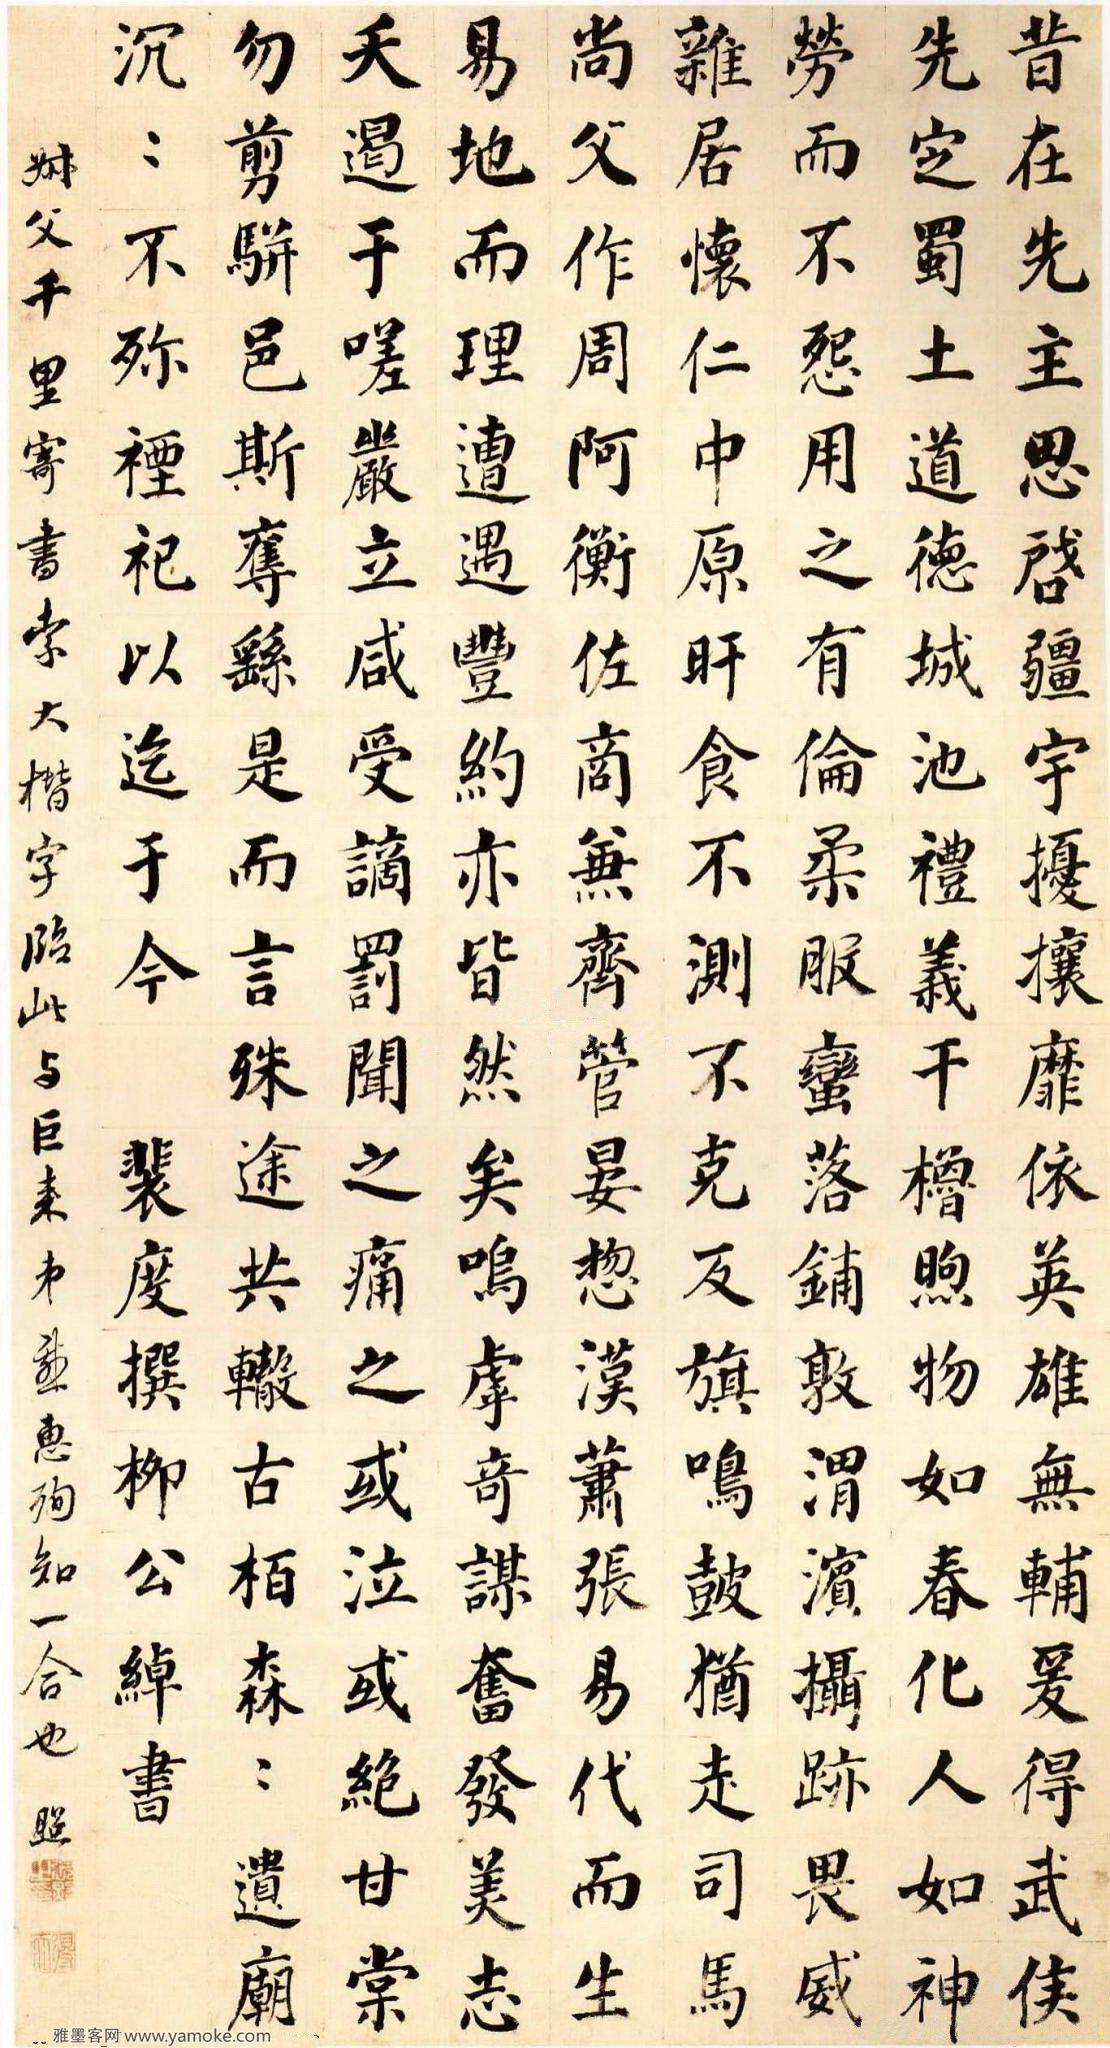 昔在先主思啓疆宇擾攘靡依英雄無輔爰得武侯
先定蜀土道德城池禮義干櫓煦物如春化人如神
勞而不怨用之有倫柔服蠻落鋪敦渭濱攝跡畏威
雜居懷仁中原旰食不測不克反旗鳴鼓猶走司馬
尚父作周阿衡佐商兼齊管晏揔漢蕭張易代而生
易地而理遭遇豐約亦皆然矣嗚虖奇謀奮發美志
夭遏于嗟嚴立咸受謫罰聞之痛之或泣或絕甘棠
勿剪駢邑斯奪繇是而言殊途共轍古柏森〻遺廟
沉〻不殄禋祀以迄于今 裴度撰柳公綽書
叔父千里寄書索大楷字臨此与巨來弟 惠 知一合也 照
雅墨客网 www.yamoke.com